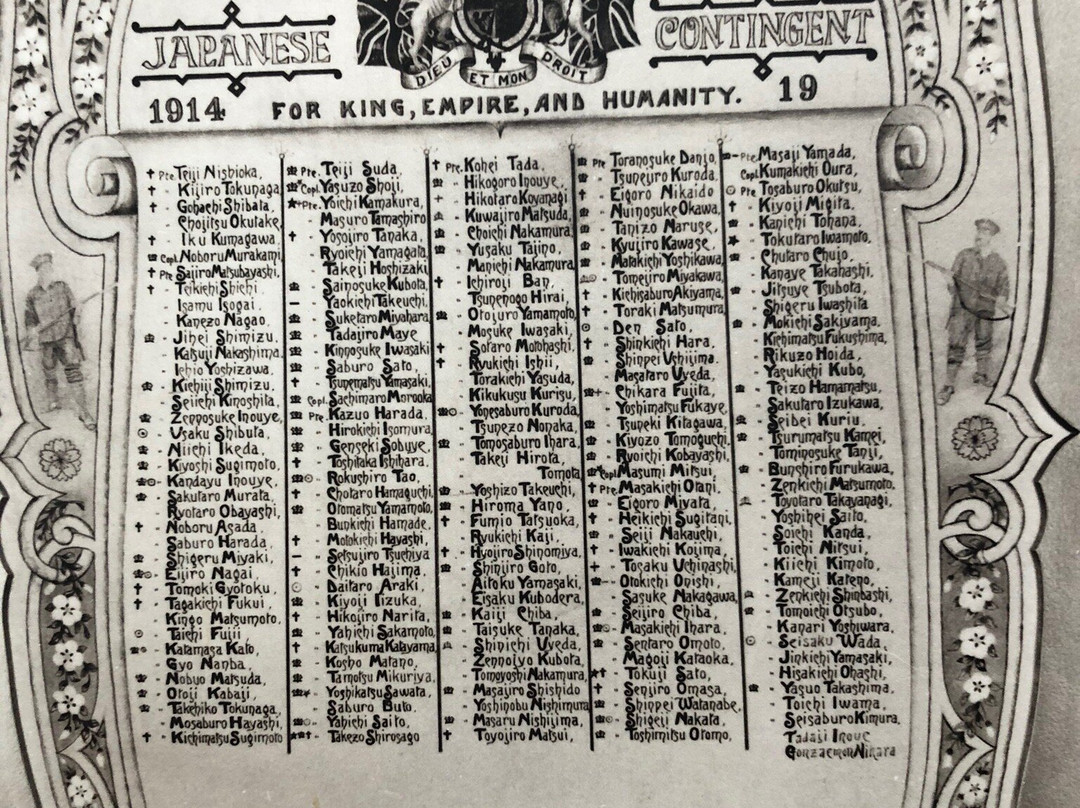 JAPANESE
CONTINGENT
DIEU ET MON DROIT
1914 FOR KING, EMPIRE, AND HUMANITY. 19
† Pte Teiji Nishioka,
† " Kijiro Tokunaga
† " Gohachi Shibata,
" Chojitsu Okutake,
† " Iku Kumagawa,
Copl. Noboru Murakami,
† Pte Saijiro Matsubayashi,
† " Teikichi Shichi
" Isamu Isogai,
" Kanezo Nagao,
" Jihei Shimizu,
" Katsuji Nakashima,
" Ichio Yoshizawa,
" Kichiji Shimizu,
" Seiichi Kinoshita,
" Zennosuke Inouye,
" Usaku Shibuta,
" Niichi Ikeda,
" Kiyoshi Sugimoto,
" Kandayu Inouye,
" Sakutaro Murata,
" Ryotaro Obayashi,
† " Noboru Asada,
" Saburo Harada,
" Shigeru Miyaki,
" Eijiro Nagai,
† " Tomoki Gyotoku,
† " Tagakichi Fukui,
" Kingo Matsumoto,
" Taichi Fujii,
" Katamasa Kato,
" Gyo Nanba,
" Nobuo Matsuda,
" Otoji Kabaji,
" Takehiko Tokunaga,
" Mosaburo Hayashi,
† " Kichimatsu Sugimoto
Pte. Teiji Suda,
Copl. Yasuzo Shoji,
Pte. Yoichi Kamakura,
" Masuro Tamashiro
† " Yosojiro Tanaka,
" Ryoichi Yamagata,
" Takeji Hoshizaki
" Sainosuke Kubota,
– " Yaokichi Takeuchi,
" Suketaro Miyahara,
" Tadajiro Maye
" Kinnosuke Iwasaki
" Saburo Sato,
† " Tsunematsu Yamasaki,
Copl. Sachimaro Morooka
Pte. Kazuo Harada,
" Hirokichi Isomura,
" Genseki Sobuye,
" Toshitaka Ishihara,
" Rokushiro Tao,
" Chotaro Hamaguchi,
" Otomatsu Yamamoto,
" Bunkichi Hamade,
† " Motokichi Hayashi,
– " Setsujiro Tsuchiya
† " Chikio Hajima,
" Daitaro Araki,
" Kiyoji Iizuka,
† " Hikojiro Narita,
" Yahichi Sakamoto,
† " Katsukuma Katayama,
" Kosho Matano,
" Tamotsu Mikuriya,
" Yoshikatsu Sawata,
" Saburo Buto,
" Yahichi Saito,
" Takezo Shirosago
† Pte. Kohei Tada,
" Hikogoro Inouye,
" Hikotaro Koyanagi
" Kuwajiro Matsuda,
" Choichi Nakamura,
" Yusaku Tajino,
" Manichi Nakamura,
† " Ichiroji Ban,
" Tsunenogo Hirai,
" Otojuro Yamamoto,
" Mosuke Iwasaki,
† " Sotaro Motohashi,
† " Ryukichi Ishii,
" Torakichi Yasuda,
" Kikukusu Kurisu,
" Yonesaburo Kuroda,
" Tsunezo Nonaka,
" Tomosaburo Ihara,
" Takeji Hirota,
Tomota
" Yoshizo Takeuchi,
" Hiroma Yano,
† " Fumio Tatsuoka,
" Ryukichi Kaji,
† " Hyojiro Shinomiya,
" Shinjiro Goto,
" Aitoku Yamasaki,
" Eisaku Kubodera,
" Kaiji Chiba,
" Taisuke Tanaka,
" Shinichi Uyeda,
" Zennojyo Kubota,
" Tomoyoshi Nakamura,
" Masajiro Shishido
" Yoshinobu Nishimura
" Masaru Nishijima,
† " Toyojiro Matsui,
Pte Toranosuke Danjo,
" Tsunejiro Kuroda,
† " Eigoro Nikaido
" Nuinosuke Okawa,
" Tanizo Naruse,
" Kyujiro Kawase,
" Matakichi Yoshikawa,
" Tomejiro Miyakawa,
† " Kichisaburo Akiyama,
† " Toraki Matsumura,
" Den Sato,
† " Shinkichi Hara,
" Shinpei Ushijima,
" Masataro Uyeda,
" Chikara Fujita,
" Yoshimatsu Fukaye,
" Tsuneki Kitagawa,
" Kiyozo Tomoguchi,
" Ryoichi Kobayashi,
Copl Masumi Mitsui,
† Pte. Masakichi Otani,
" Eigoro Miyata,
† " Heikichi Sugitani,
" Seiji Nakauchi,
† " Iwakichi Kojima,
" Tosaku Uchinashi,
" Otokichi Onishi,
" Sasuke Nakagawa,
" Seijiro Chiba,
" Masakichi Ihara,
" Sentaro Omoto,
" Magoji Kataoka,
" Tokuji Sato,
† " Senjiro Omasa,
" Shinpei Watanabe,
" Shigeji Nakata,
" Toshimitsu Otomo,
Pte. Masaji Yamada,
Copl. Kumakichi Oura,
Pte Tosaburo Okutsu,
† " Kiyoji Migita,
" Kanichi Tohana,
" Tokutaro Iwamoto,
" Chutaro Chujo,
" Kanaye Takahashi,
" Jitsuye Tsubota,
" Shigeru Iwashita
" Mokichi Sakiyama,
" Kichimatsu Fukushima,
" Rikuzo Hoida,
" Yasukichi Kubo,
" Teizo Hamamatsu,
" Sakutaro Izukawa,
" Seibei Kuriu,
" Tsurumatsu Kamei,
" Tominosuke Tanji,
" Bunshiro Furukawa,
" Zenkichi Matsumoto,
" Toyotaro Takayanagi,
" Yoshihei Saito,
" Soichi Kanda,
" Toichi Nitsui,
" Kiichi Kimoto,
" Kameji Kateno,
" Zenkichi Shinbashi,
" Tomoichi Otsubo,
" Kanari Yoshiwara,
" Seisaku Wada,
" Jinkichi Yamasaki,
" Hisakichi Ohashi,
" Yasuo Takashima,
" Toichi Iwama,
" Seisaburo Kimura,
Tadaji Inoue
Gonzaemon Nihara